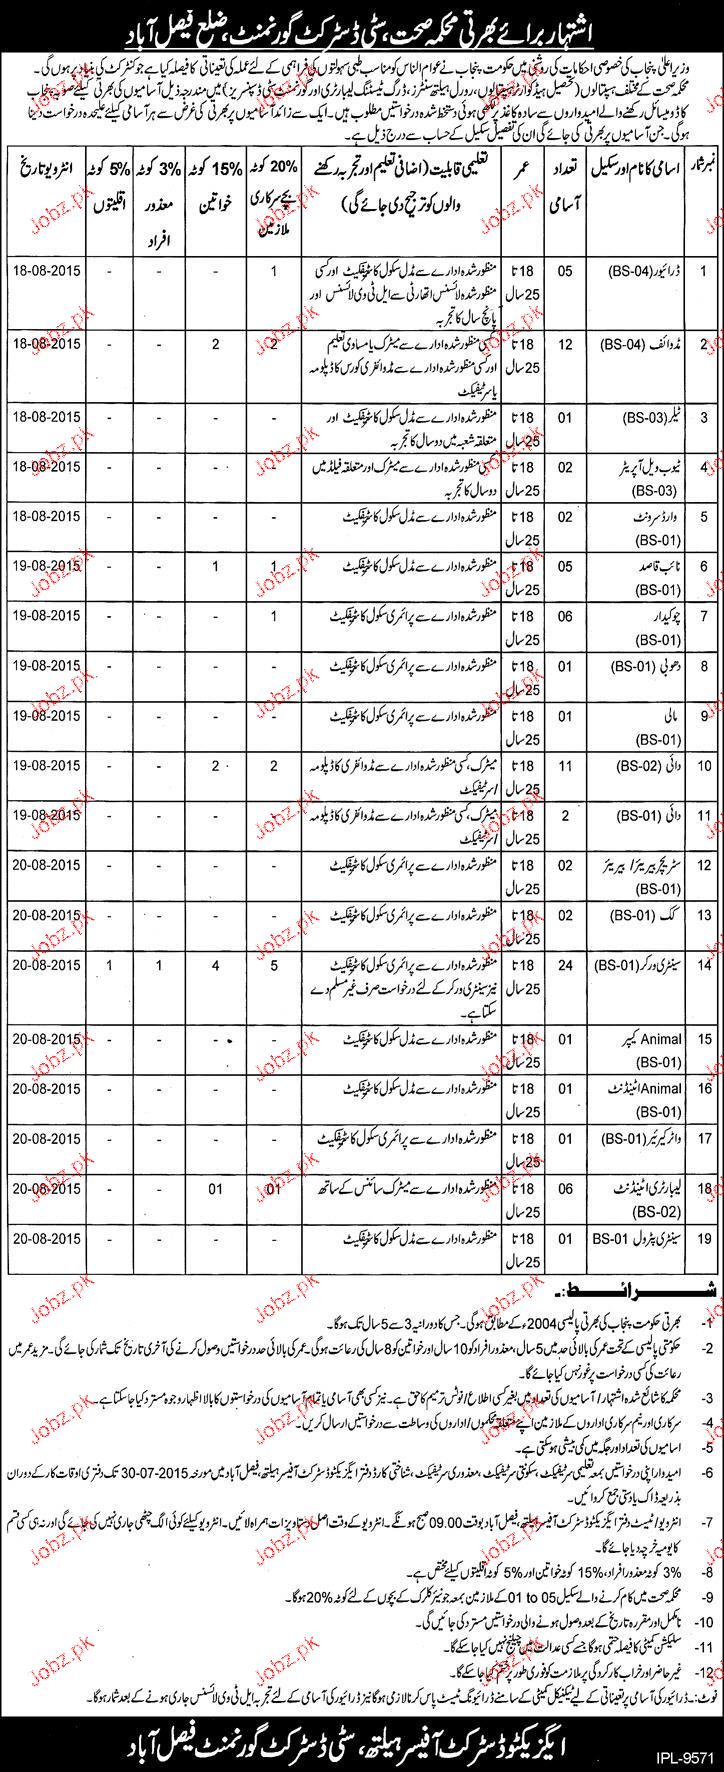 اشتہار برائے بھرتی محکمہ صحت، سٹی ڈسٹرکٹ گورنمنٹ، ضلع فیصل آباد
وزیراعلیٰ پنجاب کی خصوصی احکامات کی روشنی میں حکومت پنجاب نے عوام الناس کو مناسب طبی سہولتوں کی فراہمی کے لئے عملہ کی تعیناتی کا فیصلہ کیا ہے جو کنٹرکٹ کی بنیاد پر ہوں گی۔
محکمہ صحت کے مختلف ہسپتالوں (تحصیل ہیڈ کوارٹر ہسپتالوں، رورل ہیلتھ سنٹرز، ڈرگ ٹیسٹنگ لیبارٹری اور گورنمنٹ سٹی ڈسپنسریز) میں مندرجہ ذیل آسامیوں کی بھرتی کیلئے صوبہ پنجاب
کا ڈومیسائل رکھنے والے امیدواروں سے سادہ کاغذ پر لکھی ہوئی دستخط شدہ درخواستیں مطلوب ہیں۔ ایک سے زائد آسامیوں پر بھرتی کی غرض سے ہر آسامی کیلئے علیحدہ درخواست دینا
ہوگی۔ جن آسامیوں پر بھرتی کی جائے گی ان کی تفصیل سکیل کے حساب سے درج ذیل ہے۔
نمبر شمار | اسامی کا نام اور سکیل | تعداد آسامی | عمر | تعلیمی قابلیت (اضافی تعلیم اور تجربہ رکھنے والوں کو ترجیح دی جائے گی) | 20% کوٹہ بچے سرکاری ملازمین | 15% کوٹہ خواتین | 3% کوٹہ معذور افراد | 5% کوٹہ اقلیتوں | انٹرویو تاریخ
1 | ڈرائیور (BS-04) | 05 | 18 تا 25 سال | منظور شدہ ادارے سے مڈل سکول کا سٹیفکیٹ اور کسی منظور شدہ لائسنس اتھارٹی سے ایل ٹی وی لائسنس اور پانچ سال کا تجربہ | 1 | - | - | - | 18-08-2015
2 | مڈوائف (BS-04) | 12 | 18 تا 25 سال | کسی منظور شدہ ادارے سے میٹرک یا مساوی تعلیم اور کسی منظور شدہ ادارے سے مڈوائفری کورس کا ڈپلومہ یا سرٹیفیکٹ | 2 | 2 | - | - | 18-08-2015
3 | ٹیلر (BS-03) | 01 | 18 تا 25 سال | منظور شدہ ادارے سے مڈل سکول کا سٹیفکیٹ اور متعلقہ شعبہ میں دو سال کا تجربہ | - | - | - | - | 18-08-2015
4 | ٹیوب ویل آپریٹر (BS-03) | 02 | 18 تا 25 سال | کسی منظور شدہ ادارے سے میٹرک اور متعلقہ فیلڈ میں دو سال کا تجربہ | - | - | - | - | 18-08-2015
5 | وارڈ سرونٹ (BS-01) | 02 | 18 تا 25 سال | منظور شدہ ادارے سے مڈل سکول کا سٹیفکیٹ | - | - | - | - | 18-08-2015
6 | نائب قاصد (BS-01) | 05 | 18 تا 25 سال | منظور شدہ ادارے سے مڈل سکول کا سٹیفکیٹ | 1 | 1 | - | - | 19-08-2015
7 | چوکیدار (BS-01) | 06 | 18 تا 25 سال | منظور شدہ ادارے سے پرائمری سکول کا سٹیفکیٹ | 1 | - | - | - | 19-08-2015
8 | دھوبی (BS-01) | 01 | 18 تا 25 سال | منظور شدہ ادارے سے پرائمری سکول کا سٹیفکیٹ | - | - | - | - | 19-08-2015
9 | مالی (BS-01) | 01 | 18 تا 25 سال | منظور شدہ ادارے سے پرائمری سکول کا سٹیفکیٹ | - | - | - | - | 19-08-2015
10 | دائی (BS-02) | 11 | 18 تا 25 سال | میٹرک، کسی منظور شدہ ادارے سے مڈوائفری کا ڈپلومہ /سرٹیفکیٹ | 2 | 2 | - | - | 19-08-2015
11 | دائی (BS-01) | 2 | 18 تا 25 سال | میٹرک، کسی منظور شدہ ادارے سے مڈوائفری کا ڈپلومہ /سرٹیفکیٹ | - | - | - | - | 19-08-2015
12 | سٹریچر بیریئر/ بیریئر (BS-01) | 02 | 18 تا 25 سال | منظور شدہ ادارے سے پرائمری سکول کا سٹیفکیٹ | - | - | - | - | 20-08-2015
13 | کک (BS-01) | 02 | 18 تا 25 سال | منظور شدہ ادارے سے پرائمری سکول کا سٹیفکیٹ | - | - | - | - | 20-08-2015
14 | سینٹری ورکر (BS-01) | 24 | 18 تا 25 سال | منظور شدہ ادارے سے پرائمری سکول کا سٹیفکیٹ نیز سینٹری ورکر کے لئے درخواست صرف غیر مسلم دے سکتا ہے۔ | 5 | 4 | 1 | 1 | 20-08-2015
15 | Animal کیپر (BS-01) | 01 | 18 تا 25 سال | منظور شدہ ادارے سے مڈل سکول کا سٹیفکیٹ | - | - | - | - | 20-08-2015
16 | Animal اٹینڈنٹ (BS-01) | 01 | 18 تا 25 سال | منظور شدہ ادارے سے مڈل سکول کا سٹیفکیٹ | - | - | - | - | 20-08-2015
17 | واٹر کیرئیر (BS-01) | 01 | 18 تا 25 سال | منظور شدہ ادارے سے پرائمری سکول کا سٹیفکیٹ | - | - | - | - | 20-08-2015
18 | لیبارٹری اٹینڈنٹ (BS-02) | 06 | 18 تا 25 سال | منظور شدہ ادارے سے میٹرک سائنس کے ساتھ | 01 | 01 | - | - | 20-08-2015
19 | سینٹری پٹرول BS-01 | 01 | 18 تا 25 سال | منظور شدہ ادارے سے مڈل سکول کا سٹیفکیٹ | - | - | - | - | 20-08-2015
شرائط:۔
1- بھرتی حکومت پنجاب کی بھرتی پالیسی 2004ء کے مطابق ہوگی۔ جس کا دورانیہ 3 سے 5 سال تک ہوگا۔
2- حکومتی پالیسی کے تحت عمر کی بالائی حد میں 5 سال، معذور افراد کو 10 سال اور خواتین کو 8 سال کی رعائت ہوگی۔ عمر کی بالائی حد درخواستیں وصول کرنے کی آخری تاریخ تک شمار کی جائے گی۔ مزید عمر میں
رعائت کی کسی درخواست پر غور نہیں کیا جائے گا۔
3- محکمہ کا شائع شدہ اشتہار/ آسامیوں کی تعداد میں بغیر کسی اطلاع/ نوٹس ترمیم کا حق ہے۔ نیز کسی بھی آسامی یا تمام آسامیوں کی درخواستوں کا بالا اظہار وجوہ مسترد کیا جا سکتا ہے۔
4- سرکاری اور نیم سرکاری اداروں کے ملازمین اپنے متعلقہ محکموں/ اداروں کی وساطت سے درخواستیں ارسال کریں۔
5- اسامیوں کی تعداد اور جگہ میں کمی بیشی ہو سکتی ہے۔
6- امیدوار اپنی درخواستیں بمعہ تعلیمی سرٹیفکیٹ، سکونتی سرٹیفکیٹ، معذوری سرٹیفکیٹ، شناختی کارڈ دفتر ایگزیکٹو ڈسٹرکٹ آفیسر ہیلتھ، فیصل آباد میں مورخہ 30-07-2015 تک دفتری اوقات کار کے دوران
بذریعہ ڈاک یا دستی جمع کروائیں۔
7- انٹرویو/ ٹیسٹ دفتر ایگزیکٹو ڈسٹرکٹ آفیسر ہیلتھ، فیصل آباد بوقت 09.00 صبح ہونگے۔ انٹرویو کے وقت اصل دستاویزات ہمراہ لائیں۔ انٹرویو کیلئے کوئی الگ چٹھی جاری نہیں کی جائے گی اور نہ ہی کسی قسم
کا یومیہ خرچہ دیا جائے گا۔
8- 3% کوٹہ معذور افراد، 15% کوٹہ خواتین اور 5% کوٹہ اقلیتوں کیلئے مختص ہے۔
9- محکمہ صحت میں کام کرنے والے سکیل 01 to 05 کے ملازمین بمعہ جونیئر کلرک کے بچوں کے لئے کوٹہ 20% ہوگا۔
10- نامکمل اور مقررہ تاریخ کے بعد وصول ہونے والی درخواستیں مسترد کی جائیں گی۔
11- سلیکشن کمیٹی کا فیصلہ حتمی ہوگا جسے کسی عدالت میں چیلنج نہیں کیا جا سکے گا۔
12- غیر حاضر اور خراب کارکردگی پر ملازمت کو فوری طور پر ختم کیا جا سکے گا۔
نوٹ:۔ ڈرائیور کی آسامی پر تعیناتی کے لئے ٹیکنیکل کمیٹی کے سامنے ڈرائیونگ ٹیسٹ پاس کرنا لازمی ہوگا نیز ڈرائیور کی آسامی کے لئے تجربہ ایل ٹی وی لائسنس جاری ہونے کے بعد شمار ہوگا۔
ایگزیکٹو ڈسٹرکٹ آفیسر ہیلتھ، سٹی ڈسٹرکٹ گورنمنٹ فیصل آباد
IPL-9571
Jobz.pk